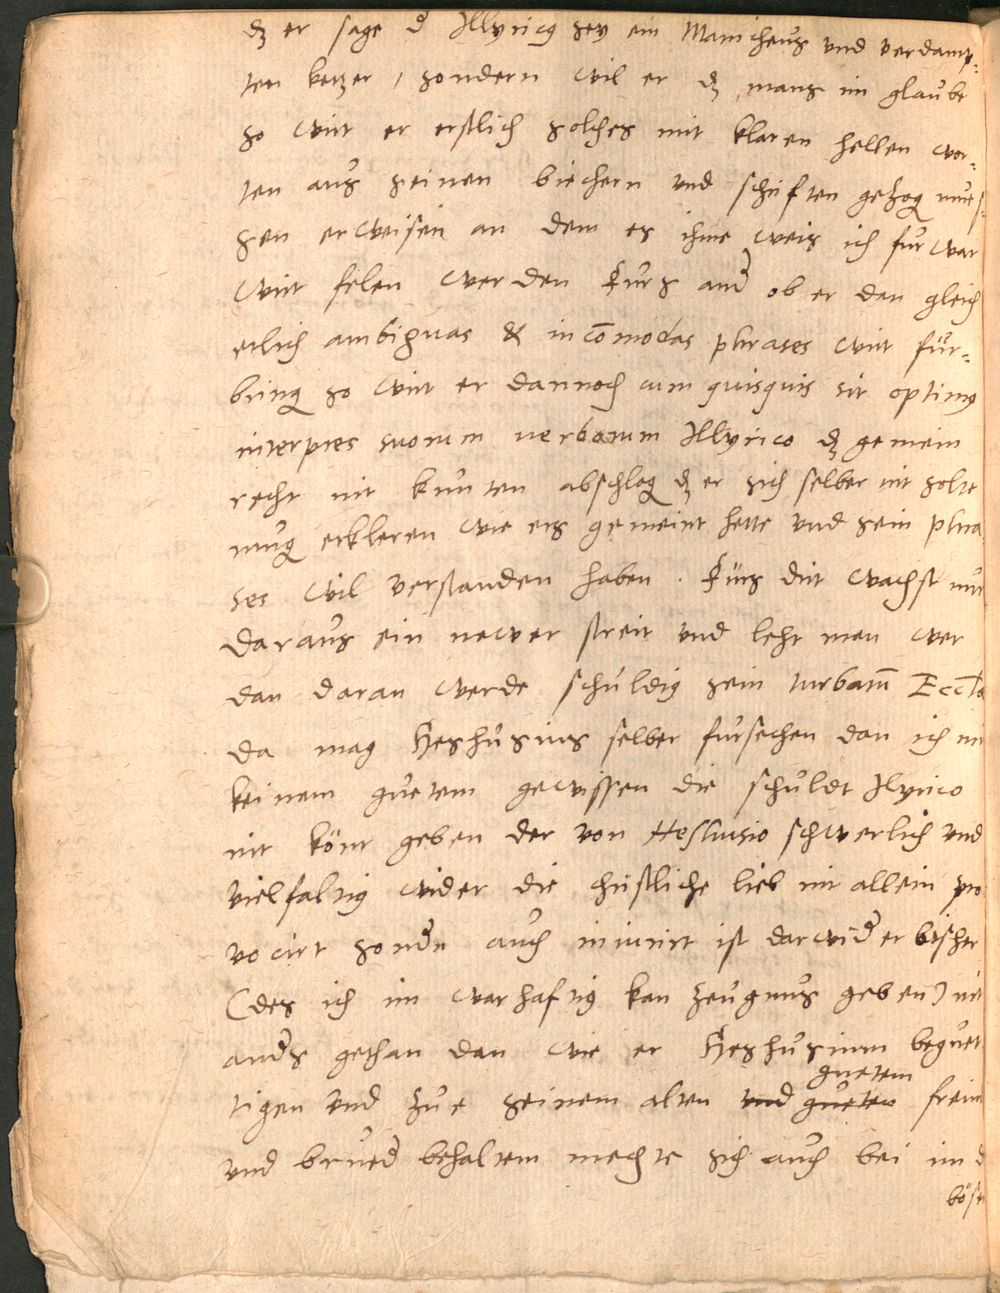 dz er sage d' Illyricus sey ein Manicheus vnd verdamp-
ten ketzer, sondern wil er dz mans im glaube
so wirt er erstlich solches mit klaren hellen wor-
ten aus seinen biechern vnd schriften gezog mues-
sen erweisen an dem es ihme weis ich fur war
wirt felen werden Furs and' ob er dan gleich
etlich ambiguas & incōmodas phrases wirt fur-
bring so wirt er dannoch cum quisquis sit optimus
interpres suorum uerborum Illyrico dz gemein
recht nit kunten abschlag dz er sich selber nit solte
mug erkleren wie ers gemeint hette vnd sein phra
ses wil verstanden haben. Furs drit wachst nur
daraus ein newer streit vnd leht men wer
dan daran werde schuldig sein turbatae Eccl̄ae
da mag Heshusius selber fursechen dan ich mi
keinem guetem gewissen die schuldt Ilyrico
nit könt geben der von Heshusio schwerlich vnd
vielfaltig wider die christliche lieb nit allein pro
vocirt sond'n auch iniurirt ist darwid' er bischer
(des ich im warhaftig kan zeugnus geben) nit
and's gethan dan wie er Heshusium beguet
tigen vnd zue seinem alten vnd gueten guetem freun
vnd brued' behaltem mechte sich auch bei im d
bösen